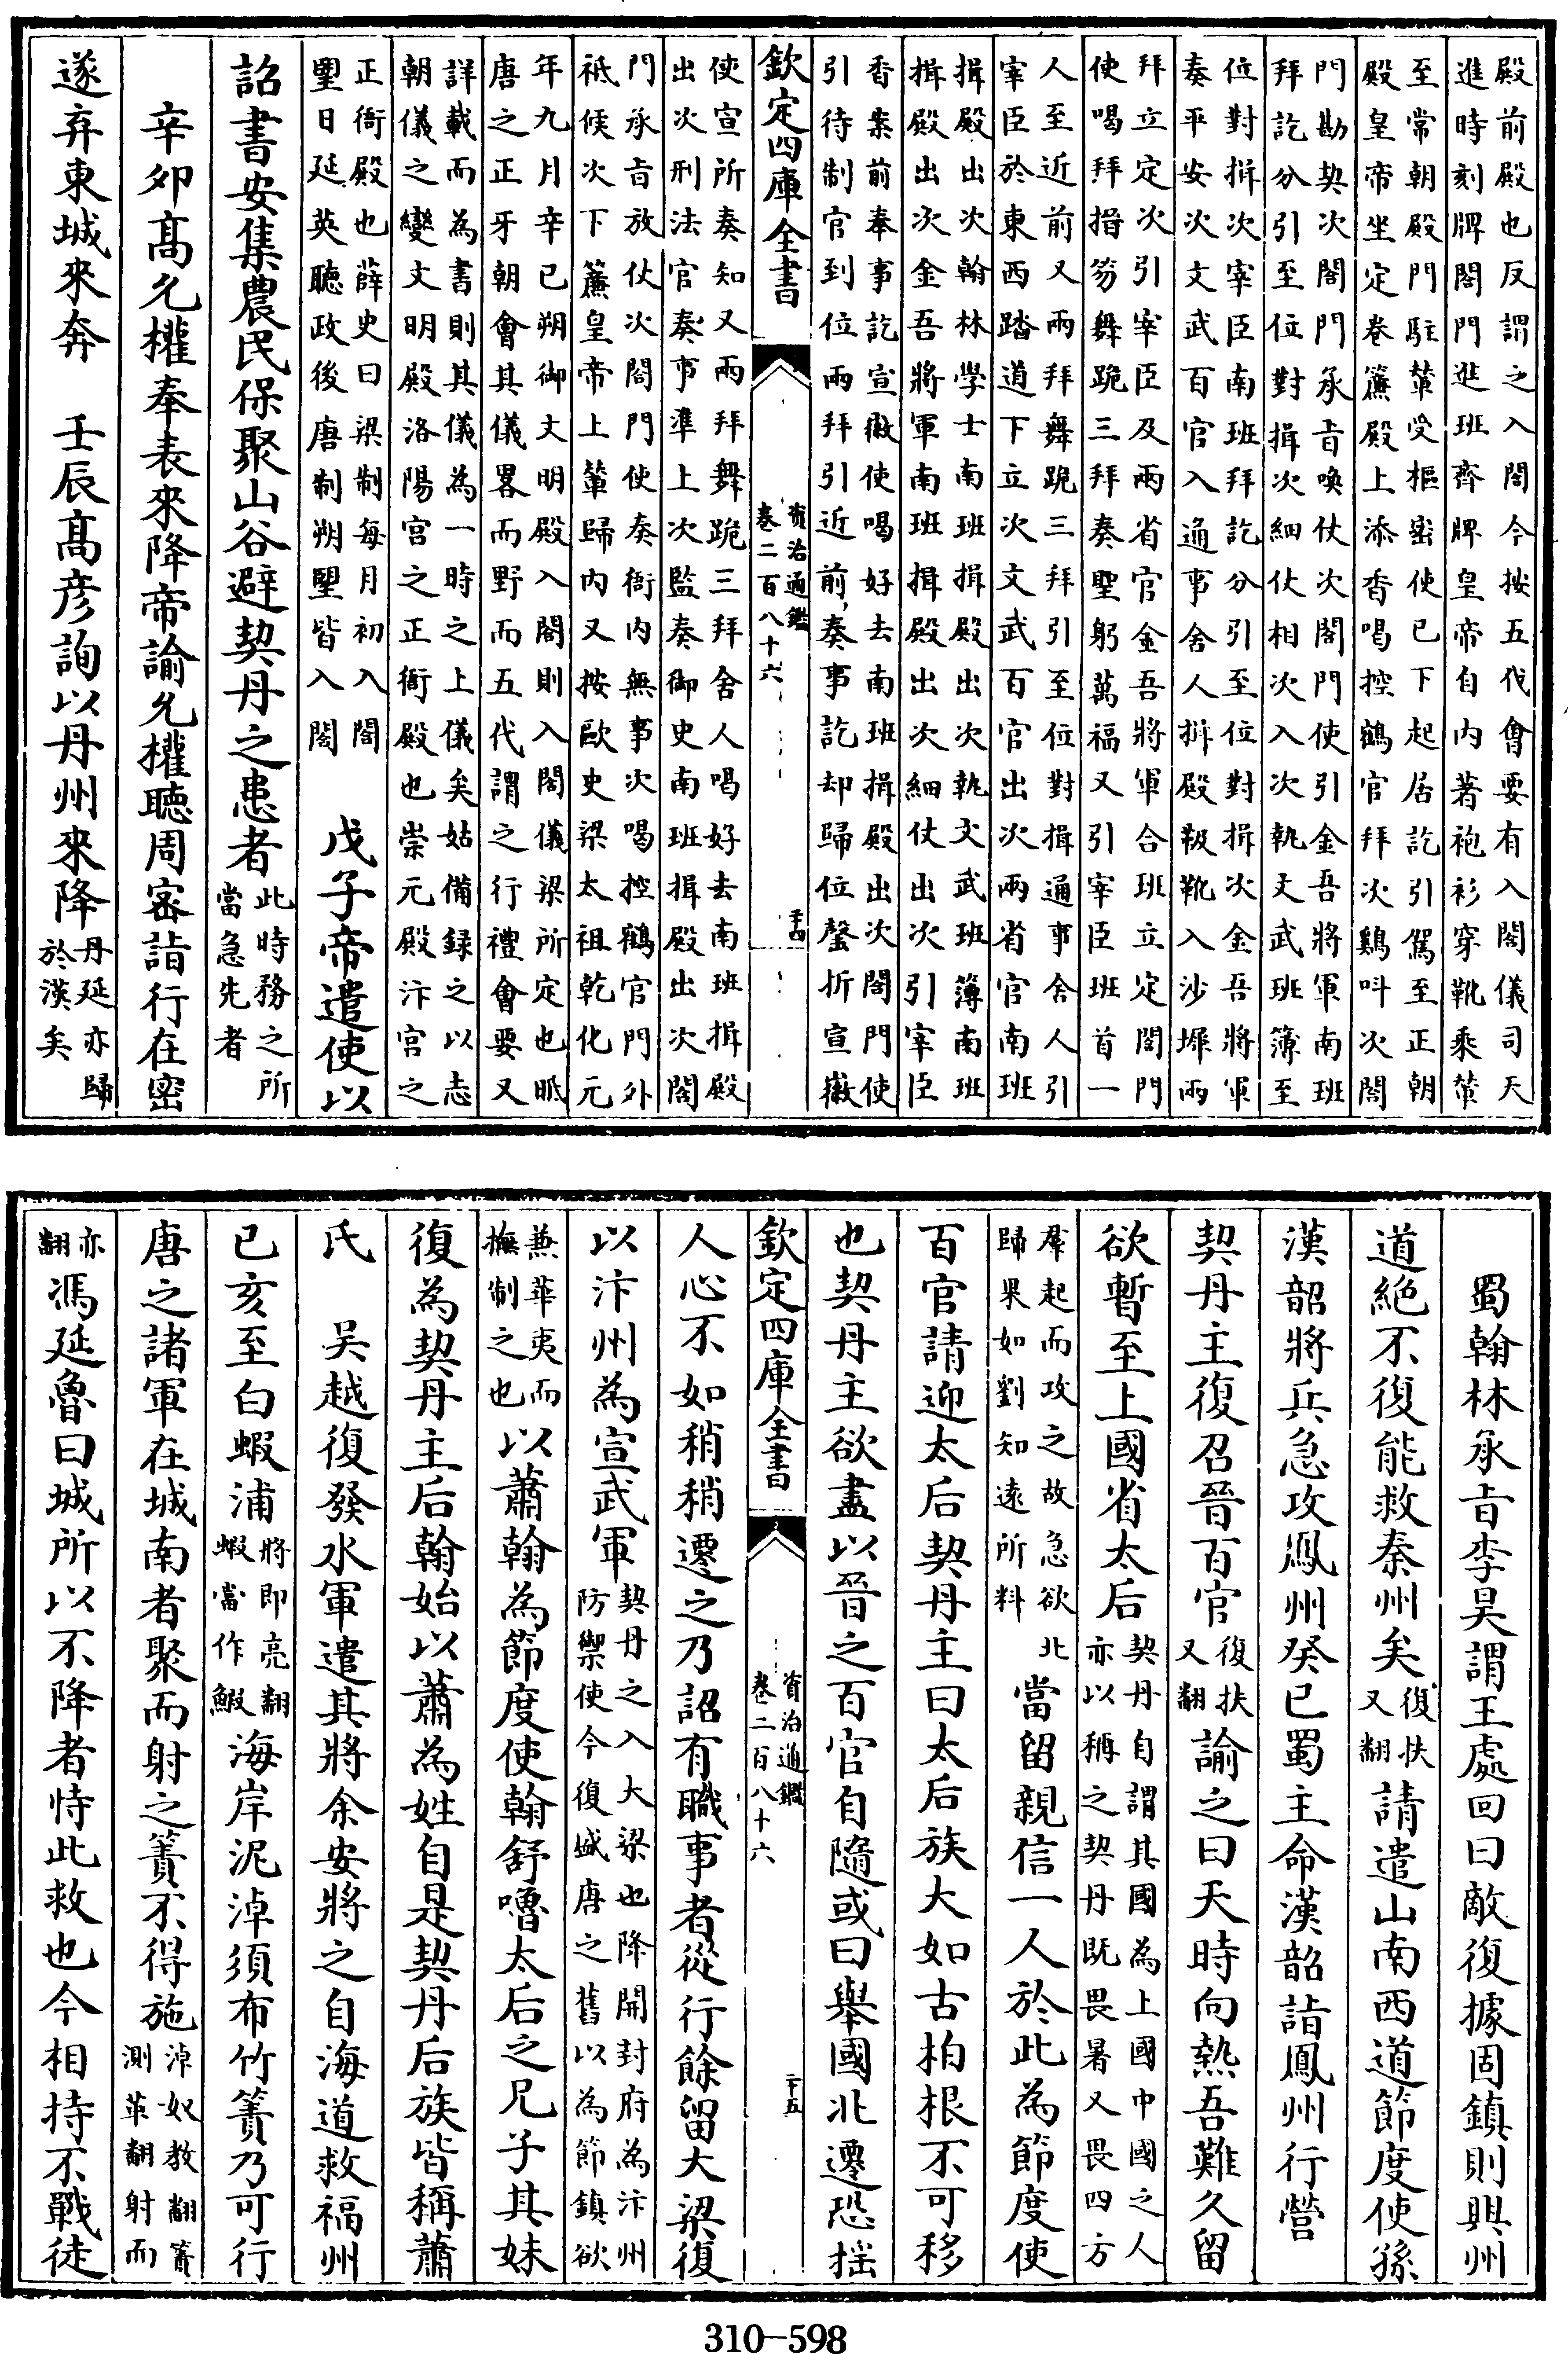 殿前殿也反謂之入閤今按五代會要有入閤儀司天
進時刻牌閤門進班齊牌皇帝自内著袍衫穿靴乗輦
至常朝殿門駐輦受樞密使已下起居訖引駕至正朝
殿皇帝坐定卷簾殿上添香喝控鶴官拜次鷄叫次閤
門勘契次閤門承㫖喚仗次閤門使引金吾將軍南班
拜訖分引至位對揖次細仗相次入次執文武班簿至
位對揖次宰臣南班拜訖分引至位對揖次金吾將軍
奏平安次文武百官入通事舍人揖殿靸靴入沙墀兩
拜立定次引宰臣及兩省官金吾將軍合班立定閤門
使喝拜搢笏舞跪三拜奏聖躬萬福又引宰臣班首一
人至近前又兩拜舞跪三拜引至位對揖通事舍人引
宰臣於東西踏道下立次文武百官出次兩省官南班
揖殿出次翰林學士南班揖殿出次執文武班簿南班
揖殿出次金吾將軍南班揖殿出次細仗出次引宰臣
香案前奉事訖宣徽使喝好去南班揖殿出次閤門使
引待制官到位兩拜引近前奏事訖却歸位磬折宣徽
欽定四庫全書
資治通鑑
卷二百八十六
二十四
使宣所奏知又兩拜舞跪三拜舍人喝好去南班揖殿
出次刑法官奏事準上次監奏御史南班揖殿出次閤
門承㫖放仗次閤門使奏衙内無事次喝控鶴官門外
祇候次下簾皇帝上輦歸内又按歐史梁太祖乾化元
年九月辛已朔御文明殿入閤則入閤儀梁所定也眡
唐之正牙朝會其儀畧而野而五代謂之行禮會要又
詳載而為書則其儀為一時之上儀矣姑備録之以志
朝儀之變文明殿洛陽宫之正衙殿也崇元殿汴宫之
正衙殿也薛史曰梁制每月初入閤
望日延英聽政後唐制朔望皆入閤
戊子帝遣使以
詔書安集農民保聚山谷避契丹之患者
此時務之所
當急先者
辛卯髙允權奉表來降帝諭允權聽周密詣行在密
遂弃東城來奔 壬辰髙彦詢以丹州來降
丹延亦歸
於漢矣
蜀翰林承㫖李昊謂王處回曰敵復據固鎮則興州
道絶不復能救秦州矣
復扶
又翻
請遣山南西道節度使孫
漢韶將兵急攻鳳州癸巳蜀主命漢韶詣鳳州行營
契丹主復召晉百官
復扶
又翻
諭之曰天時向熱吾難久留
欲暫至上國省太后
契丹自謂其國為上國中國之人
亦以稱之契丹既畏暑又畏四方
羣起而攻之故急欲北
歸果如劉知遠所料
當留親信一人於此為節度使
百官請迎太后契丹主曰太后族大如古柏根不可移
也契丹主欲盡以晉之百官自隨或曰舉國北遷恐揺
欽定四庫全書
資治通鑑
卷二百八十六
二十五
人心不如稍稍遷之乃詔有職事者從行餘留大梁復
以汴州為宣武軍
契丹之入大梁也降開封府為汴州
防禦使今復盛唐之舊以為節鎮欲
兼華夷而
撫制之也
以蕭翰為節度使翰舒嚕太后之兄子其妹
復為契丹主后翰始以蕭為姓自是契丹后族皆稱蕭
氏 吳越復發水軍遣其將余安將之自海道救福州
已亥至白蝦浦
將即亮翻
蝦當作鰕
海岸泥淖須布竹簀乃可行
唐之諸軍在城南者聚而射之簀不得施
淖奴教翻簀
測革翻射而
亦
翻
馮延魯曰城所以不降者恃此救也今相持不戰徒
310－598